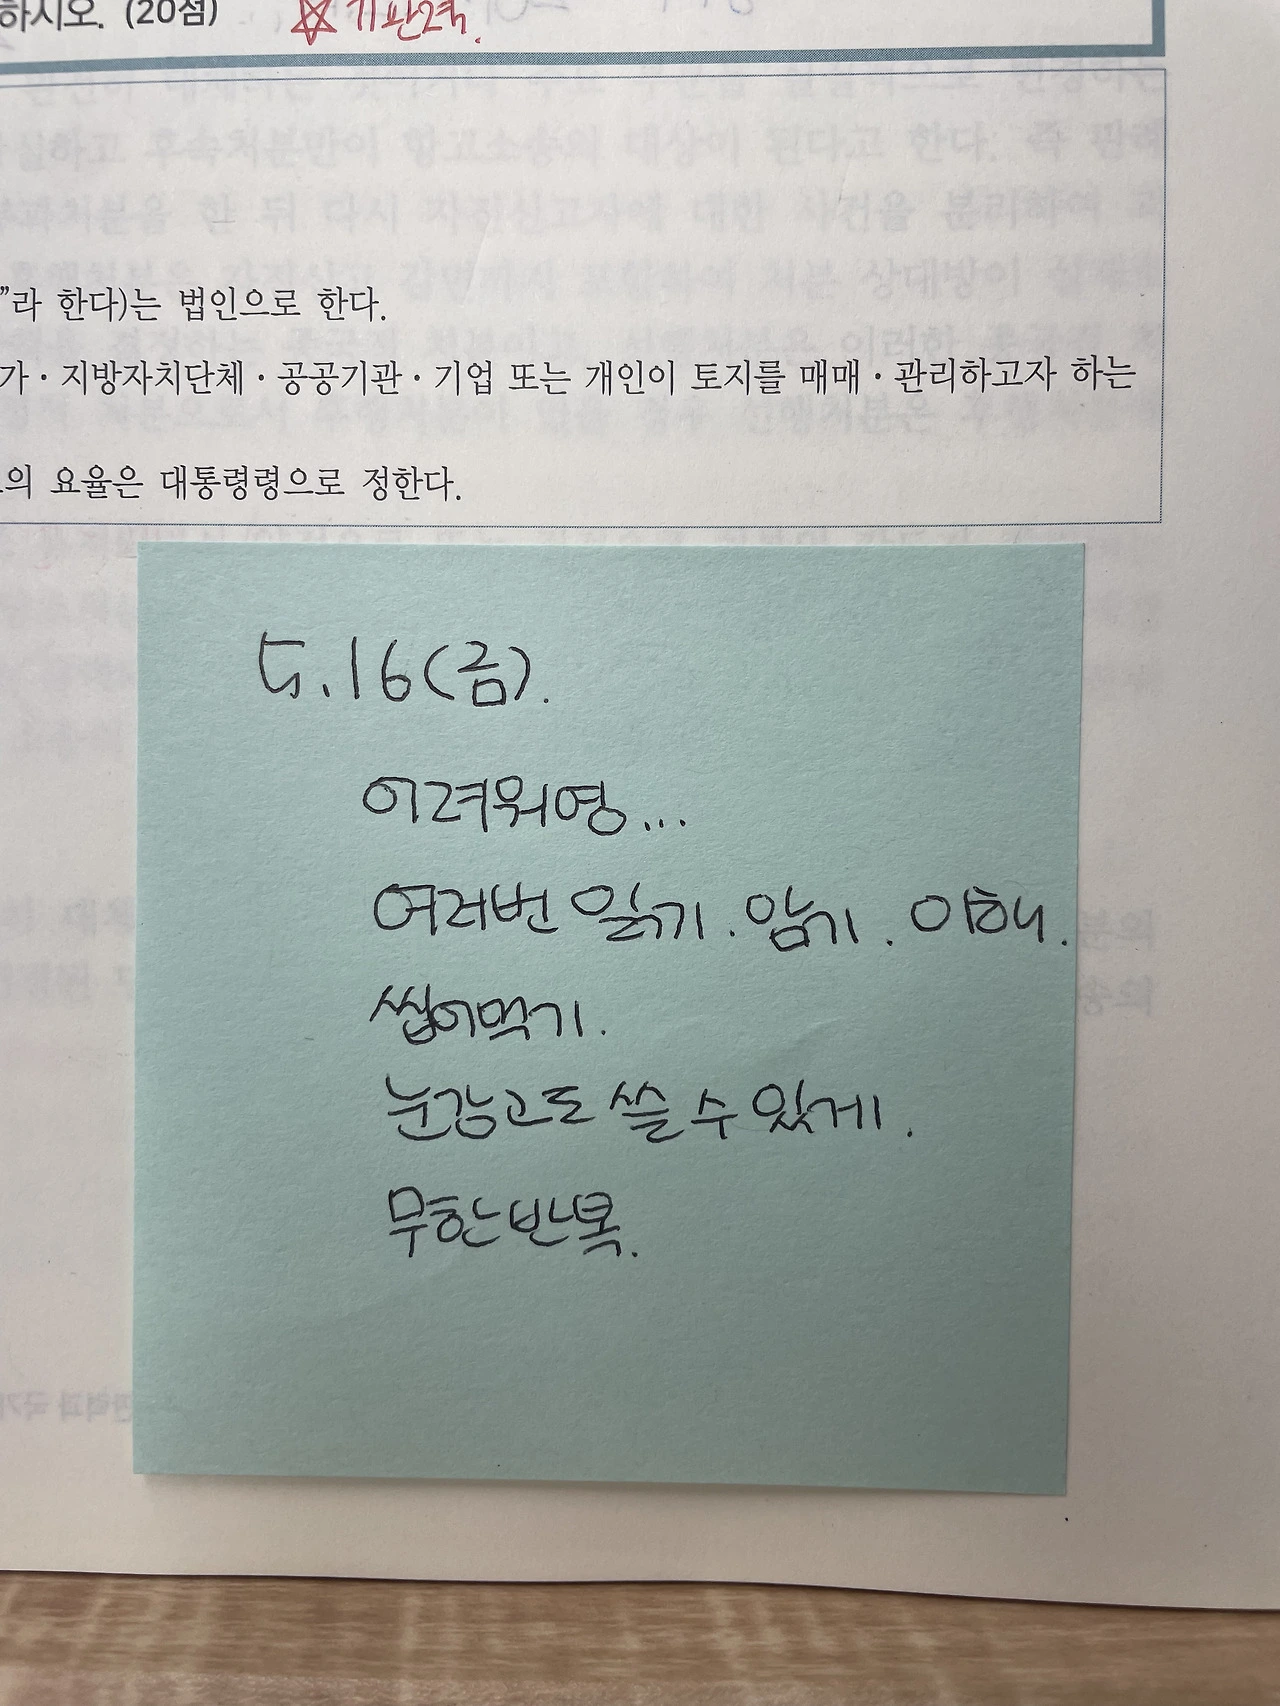 하시오. (20점)
"라 한다)는 법인으로 한다.
가·지방자치단체·공공기관·기업 또는 개인이 토지를 매매·관리하고자 하는
의 요율은 대통령령으로 정한다.
5.16(금).
어려워영...
여러번 읽기. 암기. 이해.
씹어먹기.
눈감고도 쓸 수 있게.
무한반복.